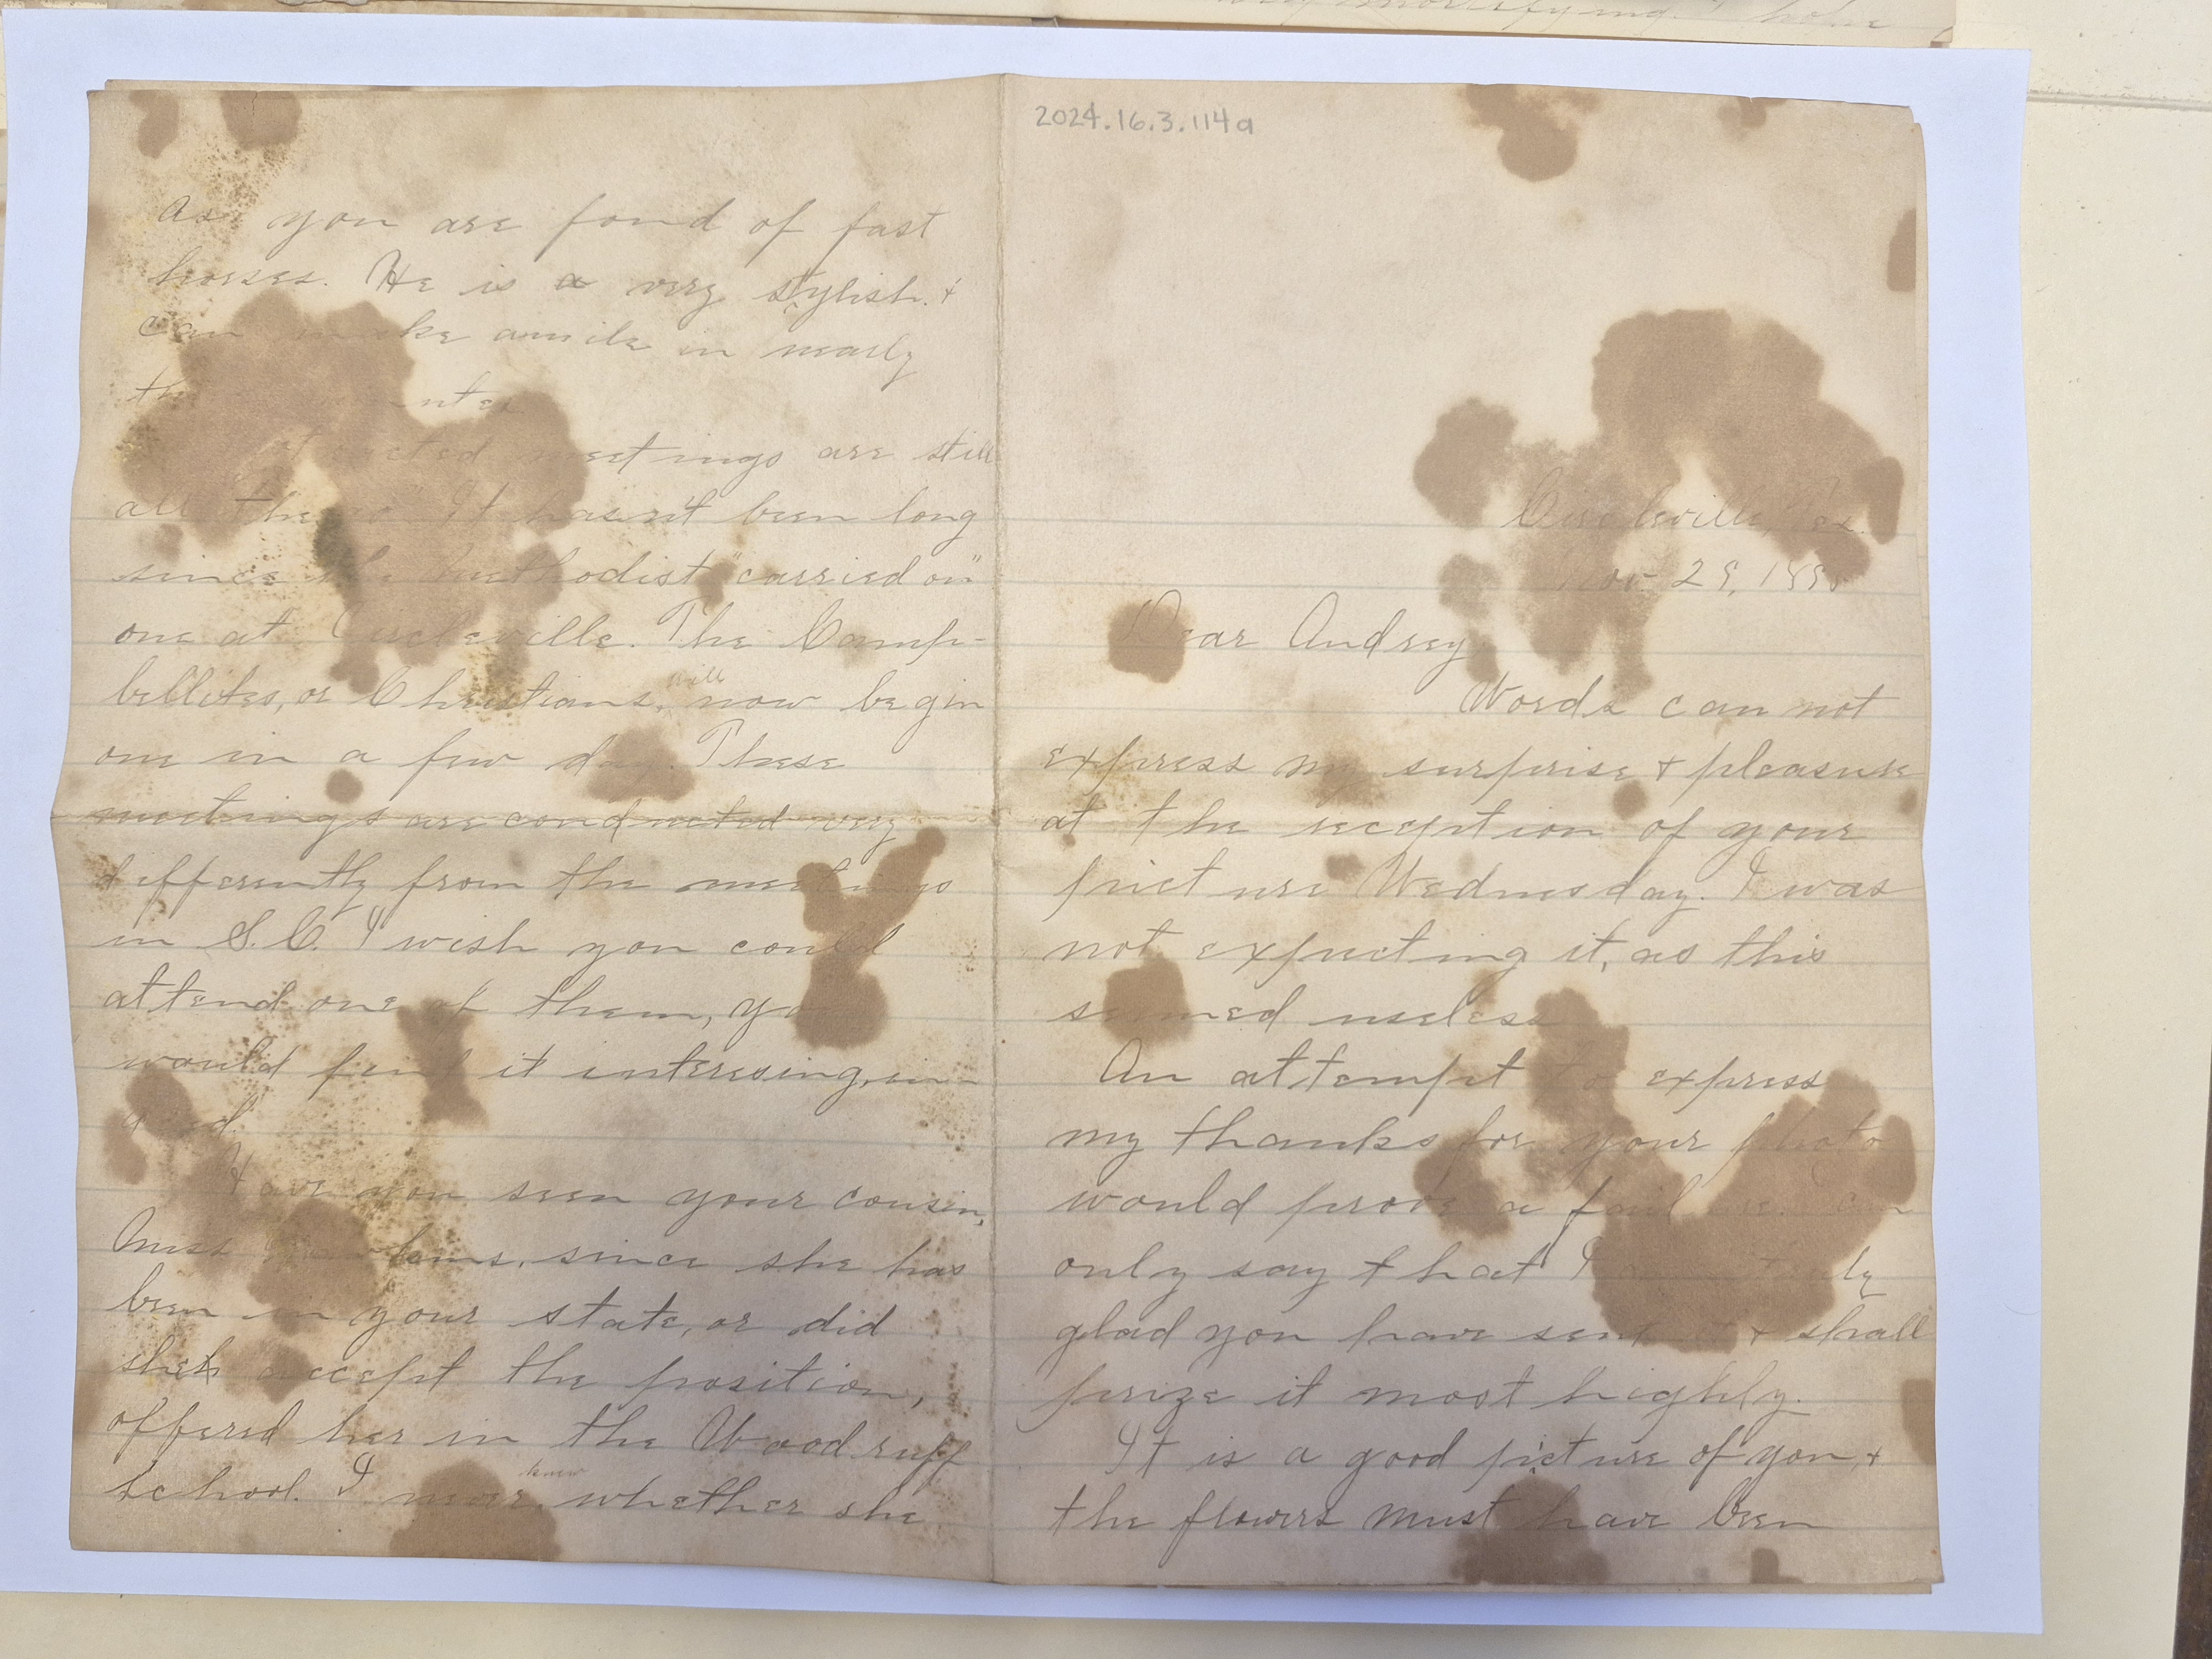 2024.16.3.114a
Circleville, Tex.
Nov. 29, 189
Dear Audrey
Words can not
express my surprise & pleasure
at the reception of your
picture Wednesday. I was
not expecting it, as this
seemed useless
An attempt to express
my thanks for your photo
would prove a failure.
only say that I
glad you have sent it & shall
prize it most highly.
It is a good picture of you, &
the flowers must have been
As you are fond of fast
horses. He is a very stylish. &
can make amile in nearly
meetings are still
all "the It hasn't been long
since the Methodist "carried on"
one at Circleville. The Camp-
bellites, or Christians, will now begin
one in a few day. These
meetings are conducted very
differently from the meetings
in S.C. I wish you could
attend one of them, you
would find it interesing, in-
deed.
Have you seen your cousin,
Miss since she has
been in your state, or did
she accept the position,
offered her in the Woodruff
School. I never knew whether she